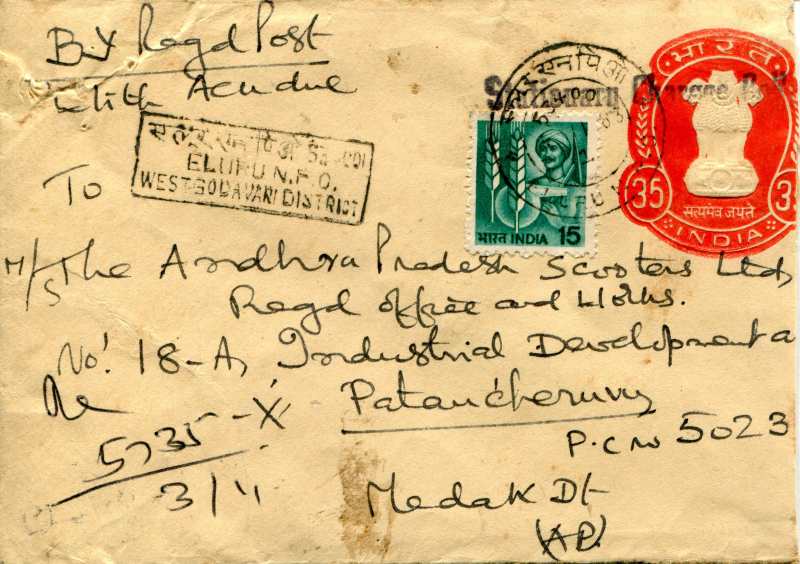 By Regd Post
With Acn due
भारत
Stationary Charges
35
सत्यमेव जयते
INDIA
भारत INDIA 15
ELURU N.P.O.
WEST GODAVARI DISTRICT
To
M/s The Andhra Pradesh Scooters Ltd,
Regd office and Works.
No! 18-A, Industrial Development a
Patancheruvu
P.C No 5023
5735-X
3/11
Medak Dt
(A.P.)